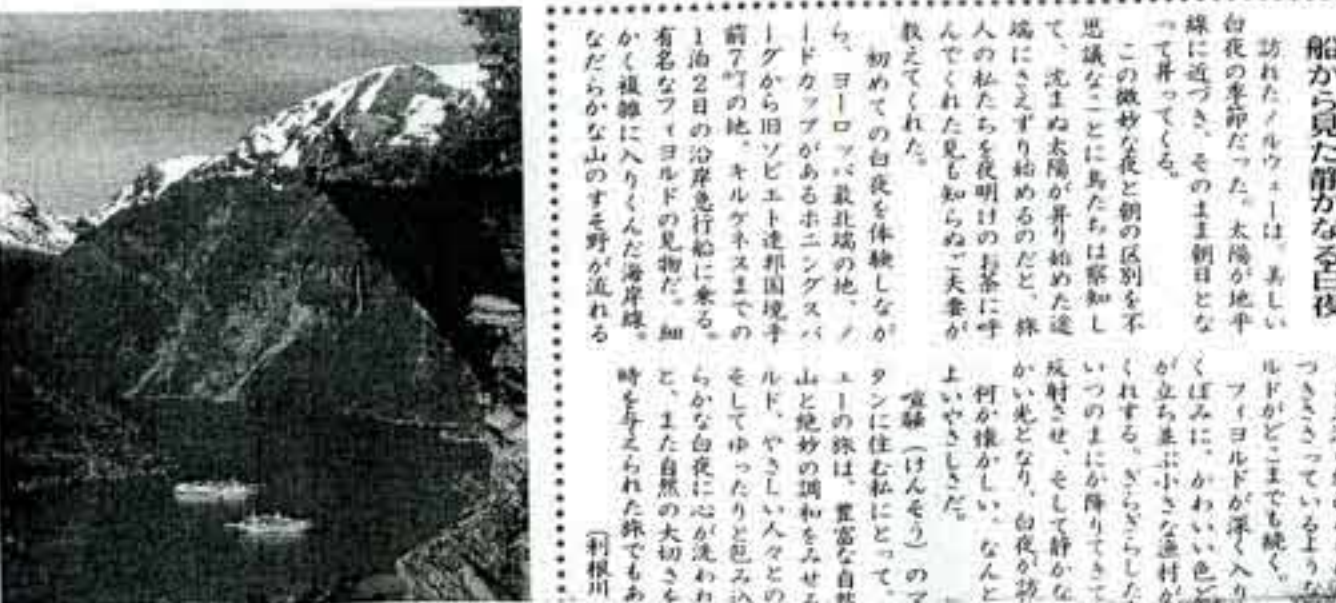 船から見た静かなる白夜
訪れたノルウェーは、美しい
白夜の季節だった。太陽が地平
線に近づき、そのまま朝日とな
って昇ってくる。
この微妙な夜と朝の区別を不
思議なことに鳥たちは察知し
て、沈まぬ太陽が昇り始めた途
端にさえずり始めるのだと、旅
人の私たちを夜明けのお茶に呼
んでくれた見も知らぬご夫妻が
教えてくれた。
初めての白夜を体験しなが
ら、ヨーロッパ最北端の地、ノ
ードカップがあるホニングスバ
ーグから旧ソビエト連邦国境寸
前の地、キルケネスまでの
1泊2日の沿岸急行船に乗る。
有名なフィヨルドの見物だ。細
かく複雑に入りくんだ海岸線。
なだらかな山のすそ野が流れる
つきささっているような
ルドがどこまでも続く。
フィヨルドが深く入り
くぼみに、かわいい色ど
が立ち並ぶ小さな漁村が
くれする。ぎらぎらした
いつのまにか降りてきて
反射させ、そして静かな
かい光となり、白夜が訪
何か懐かしい、なんと
よいやさしさだ。
喧騒（けんそう）のマ
タンに住む私にとって、
ェーの旅は、豊富な自然
山と絶妙の調和をみせる
ルド、やさしい人々との
そしてゆったりと包み込
らかな白夜に心が洗われ
と、また自然の大切さを
時を与えられた旅でもあ
［利根川